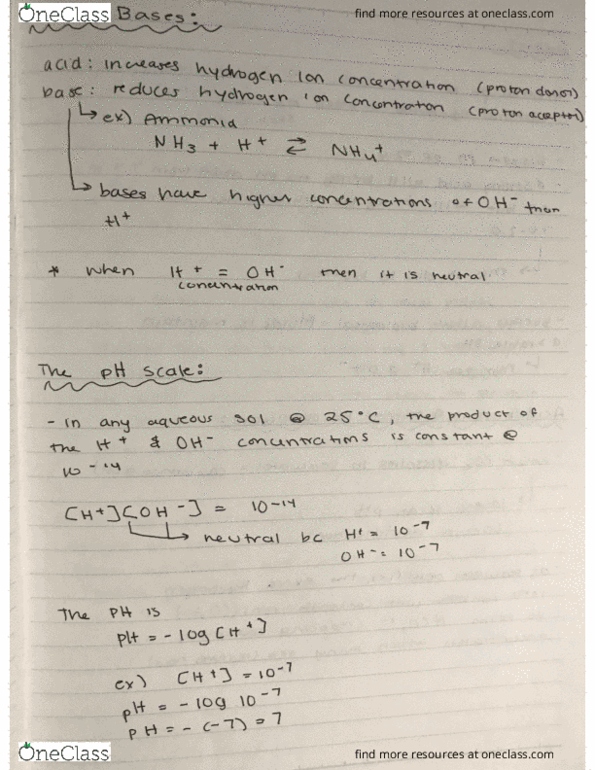 OneClass Bases: find more resources at oneclass.com
acid: increases hydrogen ion concentration (proton donor)
base: reduces hydrogen ion concentration (proton acceptor)
ex) Ammonia
NH3 + H+ ⇄ NH4+
bases have higher concentrations of OH- than
H+
* when H+ = OH- then it is neutral
concentration
The pH scale:
- in any aqueous sol @ 25°C, the product of
the H+ & OH- concentrations is constant @
10-14
[H+][OH-] = 10-14
neutral bc H+ = 10-7
OH- = 10-7
The pH is
pH = - log [H+]
ex) [H+] = 10-7
pH = - log 10-7
pH = - (-7) = 7
OneClass find more resources at oneclass.com